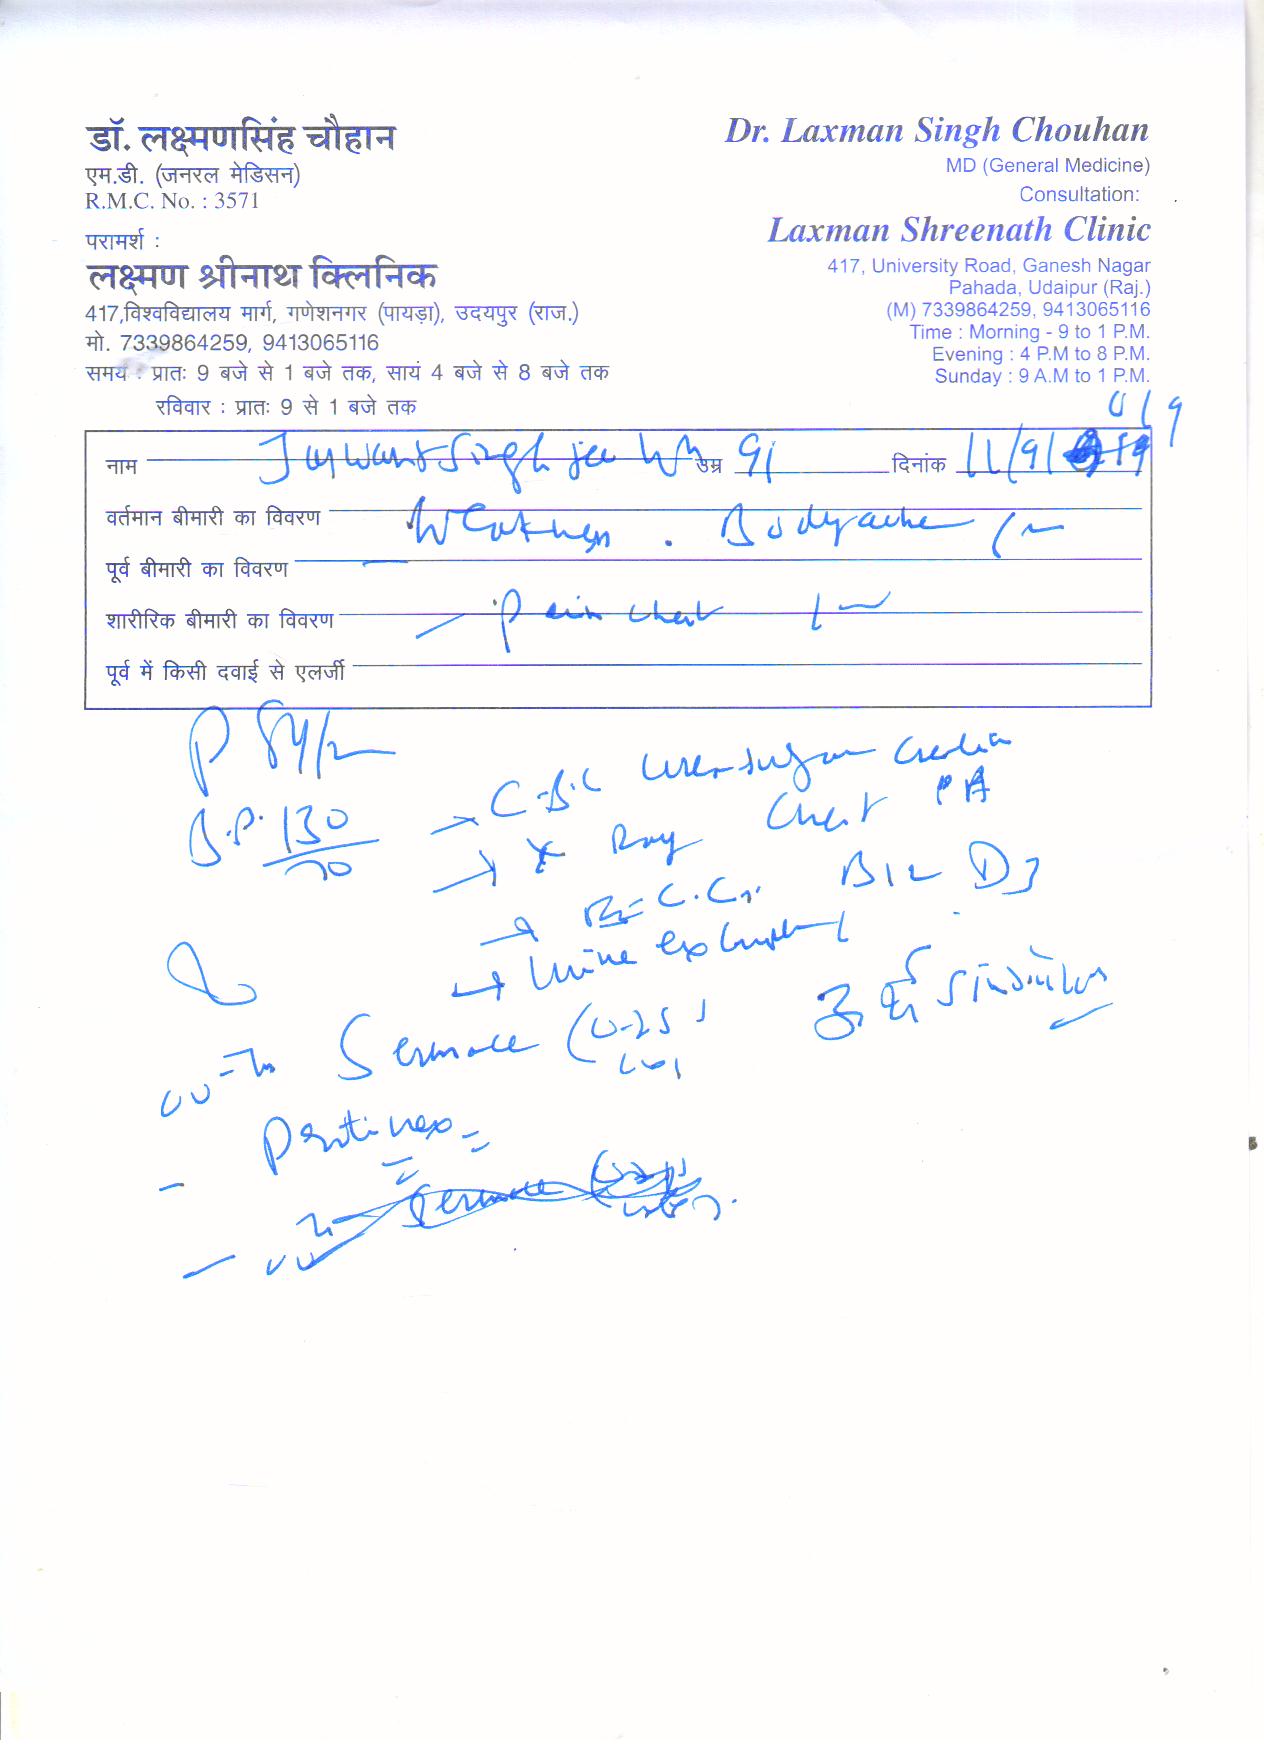 डॉ. लक्ष्मणसिंह चौहान
एम.डी. (जनरल मेडिसन)
R.M.C. No. : 3571
परामर्श :
लक्ष्मण श्रीनाथ क्लिनिक
417,विश्वविद्यालय मार्ग, गणेशनगर (पायड़ा), उदयपुर (राज.)
मो. 7339864259, 9413065116
समय : प्रातः 9 बजे से 1 बजे तक, सायं 4 बजे से 8 बजे तक
रविवार : प्रातः 9 से 1 बजे तक
Dr. Laxman Singh Chouhan
MD (General Medicine)
Consultation:
Laxman Shreenath Clinic
417, University Road, Ganesh Nagar
Pahada, Udaipur (Raj.)
(M) 7339864259, 9413065116
Time : Morning - 9 to 1 P.M.
Evening : 4 P.M to 8 P.M.
Sunday : 9 A.M to 1 P.M.
नाम Jaswant Singh jee उम्र 91 दिनांक 11/9/
वर्तमान बीमारी का विवरण Weakness. Bodyache
पूर्व बीमारी का विवरण
शारीरिक बीमारी का विवरण - Pain chest
पूर्व में किसी दवाई से एलर्जी
P 84/
B.P. 130/70
→ C.B.C Urea sugar
→ X Ray Chest PA
→ E.C.G. B12 D3
→ Urine
(0-25)
- Protinex